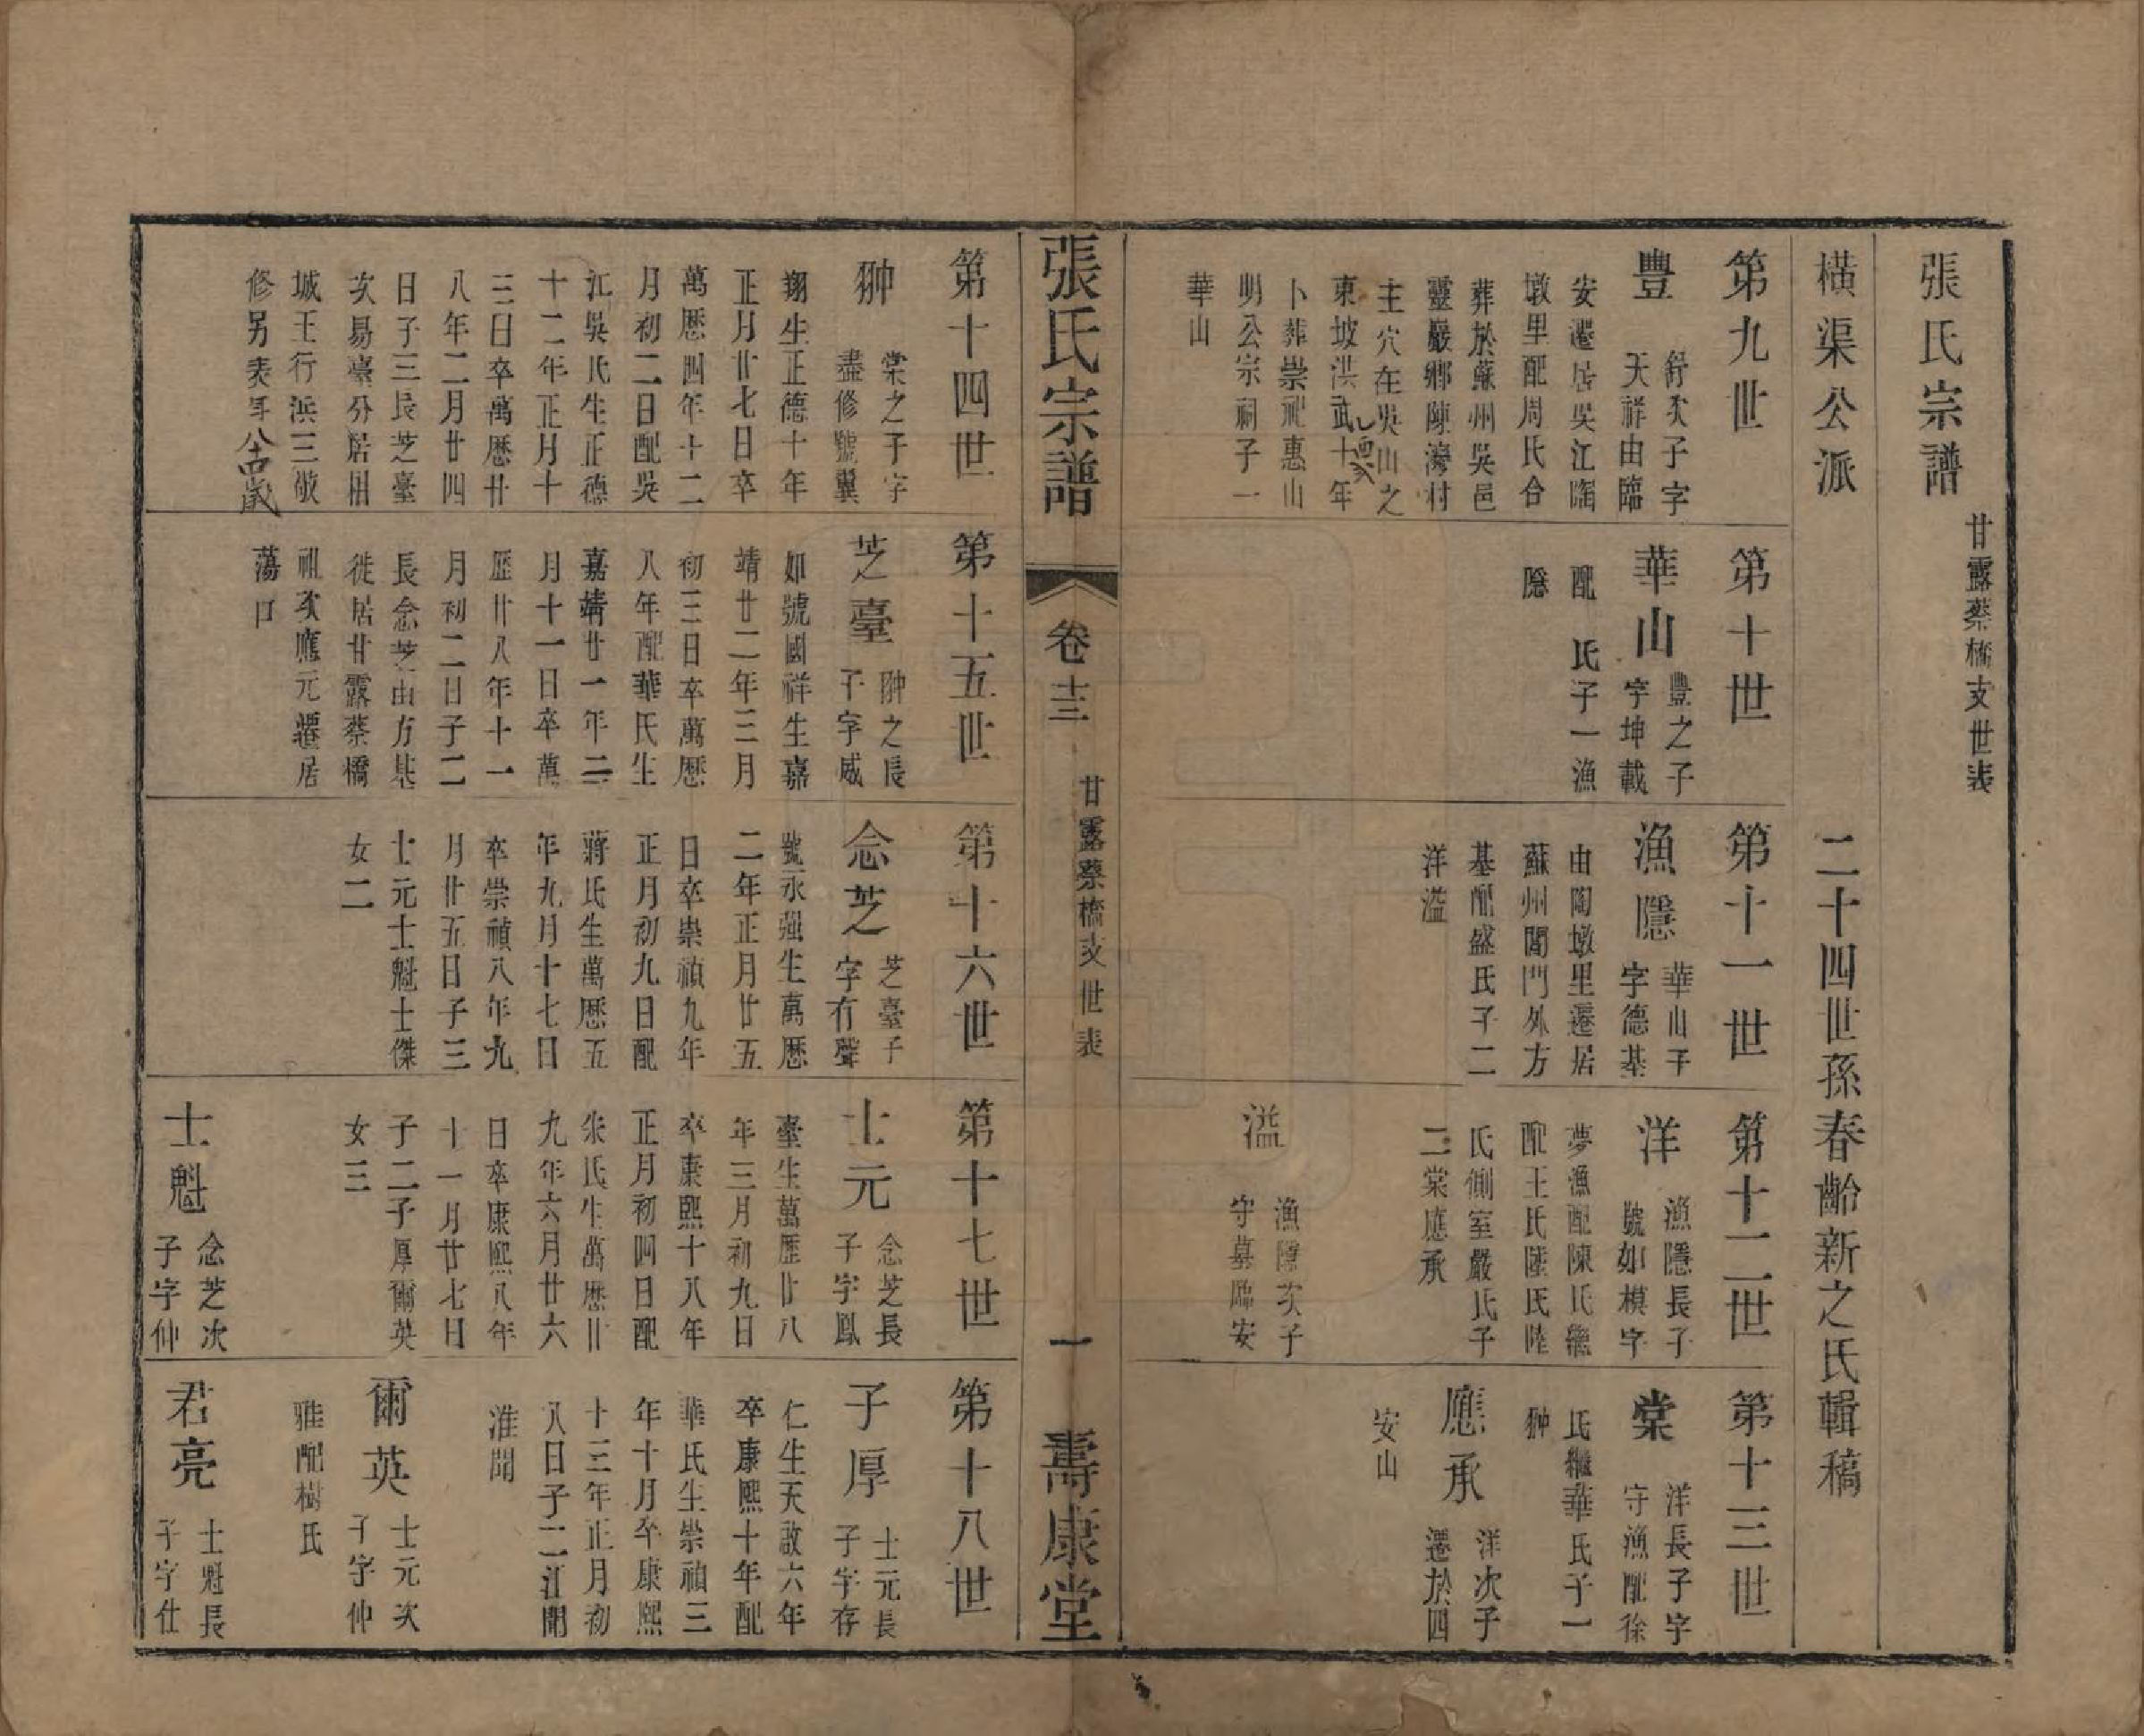 張氏宗譜
甘露蔡橋支世表
橫渠公派
二十四世孫春齡新之氏輯稿
第九世
豐
舒次子字
天祥由臨
安遷居吳江陶
墩里配周氏合
葬於蘇州吳邑
靈巖鄉陳灣村
主穴在吳山之
東坡洪武十年
卜葬崇祀惠山
明公宗祠子一
華山
第十世
華山
豐之子
字坤載
配 氏子一漁
隱
第十一世
漁隱
華山子
字德基
由陶墩里遷居
蘇州閶門外方
基配盛氏子二
洋溢
第十二世
洋
漁隱長子
號如模字
夢漁配陳氏繼
配王氏陸氏陸
氏側室嚴氏子
二棠應承
溢
漁隱次子
守墓臨安
第十三世
棠
洋長子字
守漁配徐
氏繼華氏子一
翀
應承
洋次子
遷於四
安山
張氏宗譜
卷十三
甘露蔡橋支世表
一
壽康堂
第十四世
翀
棠之子字
盡修號翼
翔生正德十年
正月廿七日卒
萬歷四年十二
月初二日配吳
江吳氏生正德
十二年正月十
三日卒萬歷廿
八年二月廿四
日子三長芝臺
次易臺分居相
城王行浜三敬
修另表年八十四歲
第十五世
芝臺
翀之長
子字咸
如號國祥生嘉
靖廿二年三月
初三日卒萬歷
八年配華氏生
嘉靖廿一年二
月十一日卒萬
歷廿八年十一
月初二日子二
長念芝由方基
徙居甘露蔡橋
祖次應元遷居
蕩口
第十六世
念芝
芝臺子
字有聲
號永強生萬歷
二年正月廿五
日卒崇禎九年
正月初九日配
蔣氏生萬歷五
年九月十七日
卒崇禎八年九
月廿五日子三
士元士魁士傑
女二
第十七世
士元
念芝長
子字鳳
臺生萬歷廿八
年三月初九日
卒康熙十八年
正月初四日配
朱氏生萬歷廿
九年六月廿六
日卒康熙八年
十一月廿七日
子二子厚爾英
女三
士魁
念芝次
子字仲
第十八世
子厚
士元長
子字存
仁生天啟六年
卒康熙十年配
華氏生崇禎三
年十月卒康熙
十三年正月初
八日子二江聞
淮聞
爾英
士元次
子字仲
雅配樹氏
君亮
士魁長
子字仕